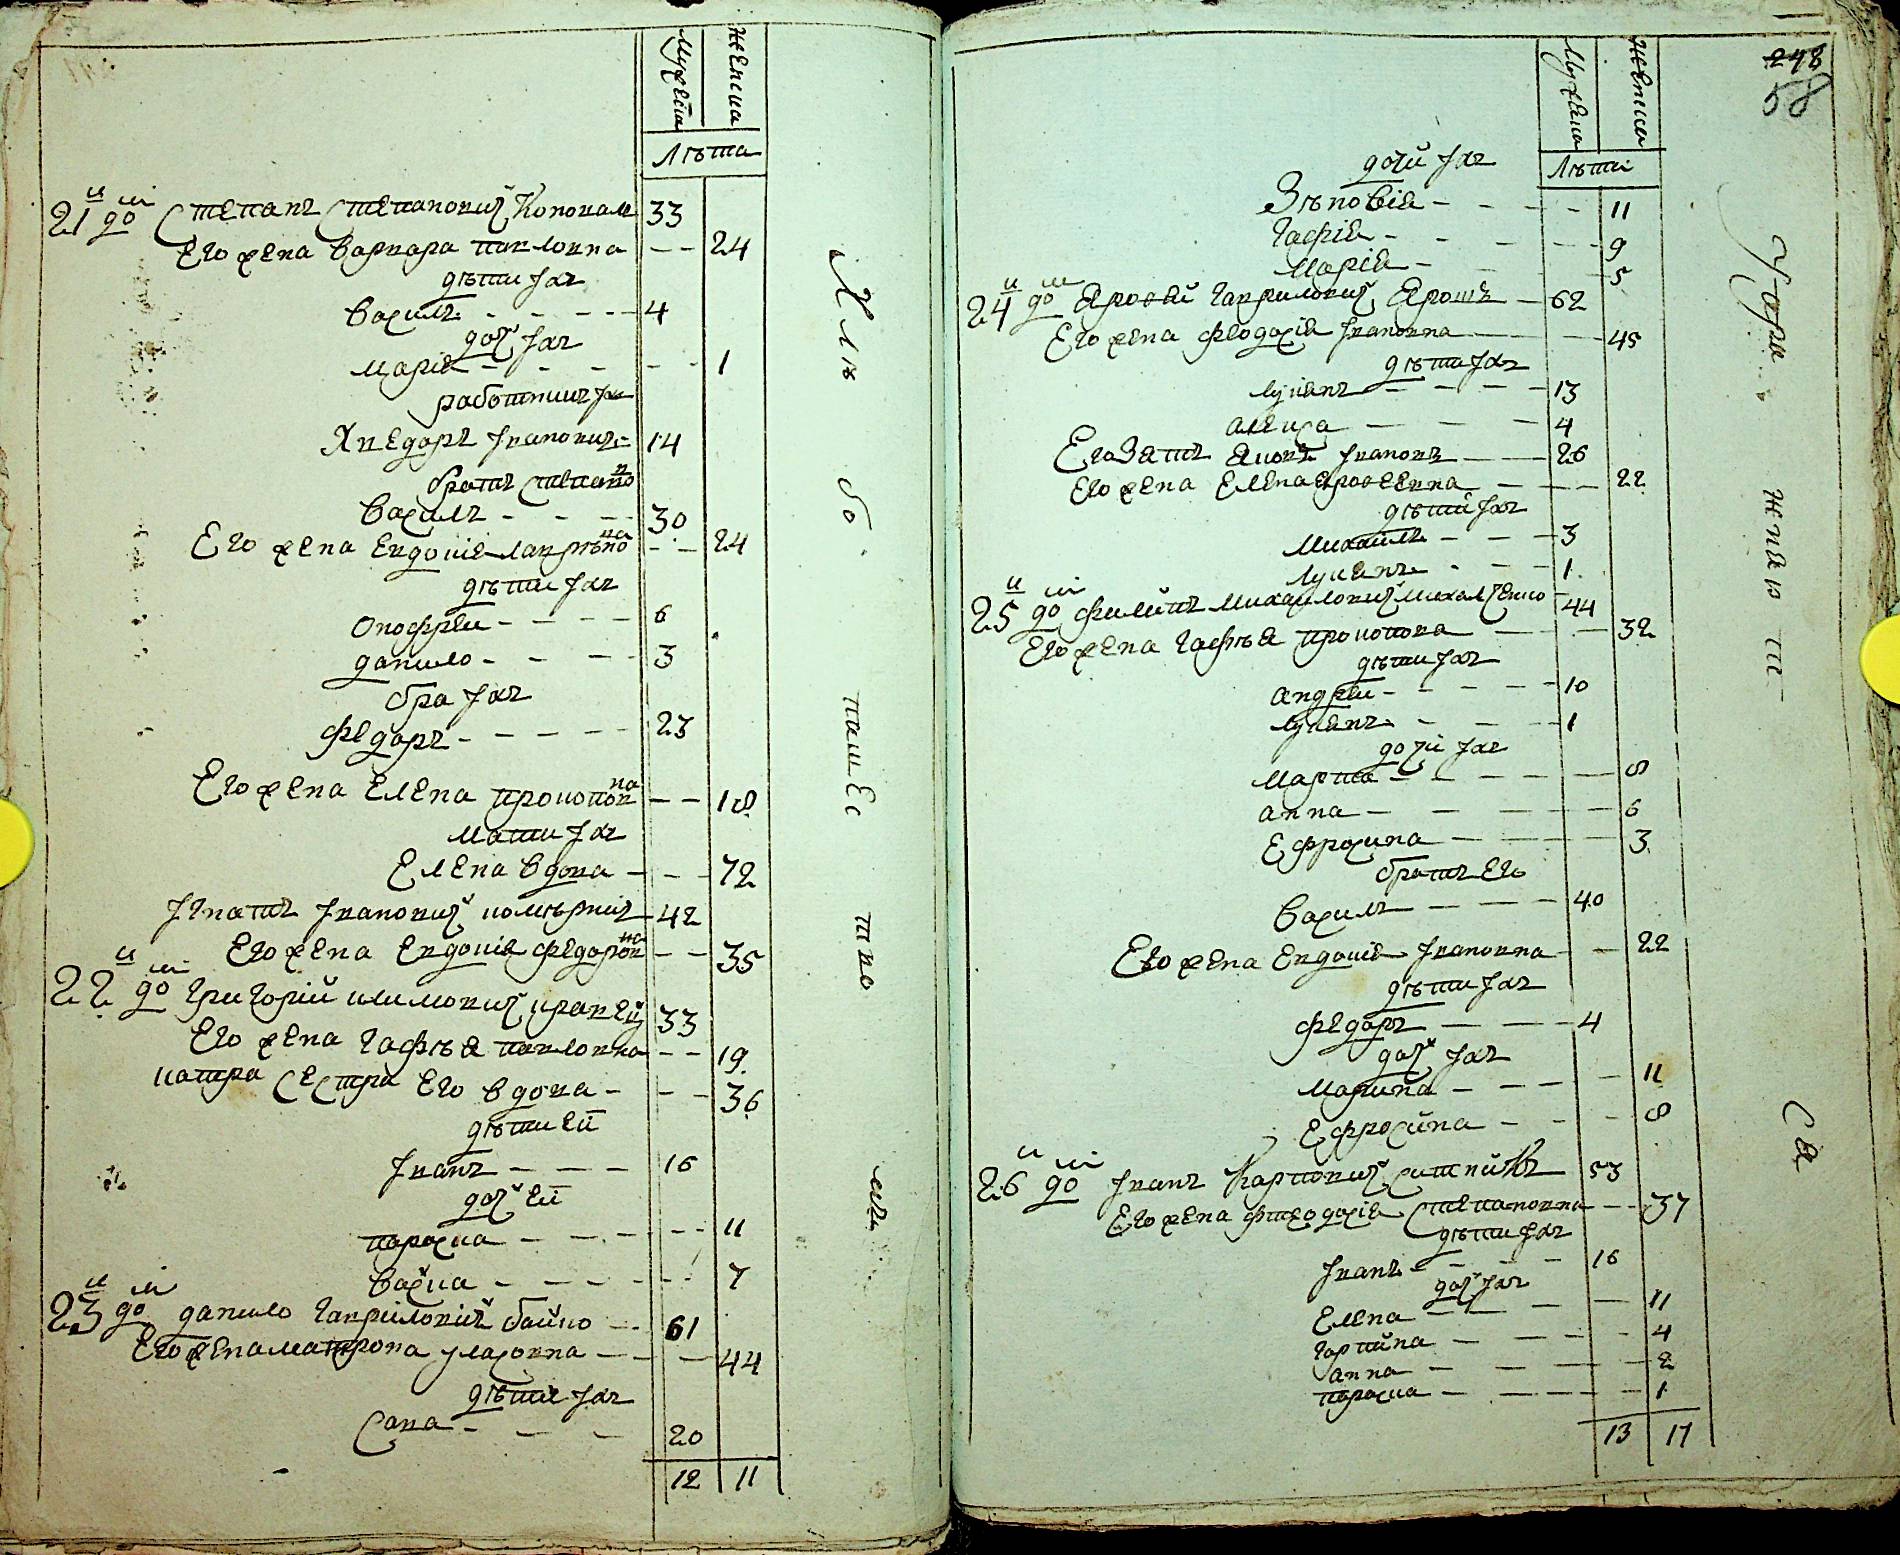 Мужеска Женска
Лѣта
21й дв Степанъ Степановичъ Коновал 33
Его жена Варвара Павловна — — 24
дѣти іхъ
Василь - - - - 4
дочъ іхъ
Марія - - - - - 1
работникъ іхъ
Хведоръ Івановичъ - 14
братъ Степано
Василь - - - 30
Его жена Евдокія Лаврѣно — — 24
дѣти іхъ
Онофрей - - - - 6
Данило - - - - 3
бра іхъ
Федоръ - - - - - 23
Его жена Елена Прокопов — — 18
мати іхъ
Елена вдова - - - 72
Ігнатъ Івановичъ 42
Его жена Евдокія Федоров — — 35
22й дв Григорій Климовичъ 33
Его жена Гафѣя Павловна — — 19
сестра Его вдова - - - 36
дѣти Ей
Іванъ - - - 16
дочъ Ей
Параска - - - - - - 11
Васка - - - - - - 7
23й дв Данило Гавриловичъ Бойко — 61
Его жена Матрона Уласовна — — — 44
дѣти іхъ
Сава - - - 20
12 11
Хлѣ бо пашес тво
248
58
Мужеска Женска
Лѣта
дочки іхъ
Зѣновія - - - - - 11
Гафія - - - - - 9
Марія - - - 5
24й дв Гавриловичъ Ярошъ — 62
Его жена Феодосія Івановна — — 45
дѣти іхъ
Лукянъ - - - - 13
- - - - 4
Его Зять Яковъ Івановъ — — 26
Его жена Елена — — — 22
дѣти іхъ
Михаилъ - - - 3
Лукянъ - - - 1
25й дв Филипъ Михаиловичъ Михалченко 44
Его жена Гафѣя Прокопова — — 32
дѣти іхъ
Андрей - - - - - 10
Лукянъ - - - - 1
дочки іхъ
Марѳа - - - - - - 8
Анна - - - - - - 6
Ефросина - - - - - 3
братъ Его
Василь - - - - 40
Его жена Евдокія Івановна — — 22
дѣти іхъ
Федоръ - - - - 4
дочъ іхъ
Марина - - - - - 11
Ефросина - - - - 8
26й дв Іванъ Карповичъ Ситникъ 53
Его жена Фтеодосія Степановна — — 37
дѣти іхъ
Іванъ - - - - - 16
дочъ іхъ
Елена - - - - - 11
Горпина - - - - - 4
Анна - - - - - - 2
Параска - - - - - - 1
13 17
Упра жняю т ся